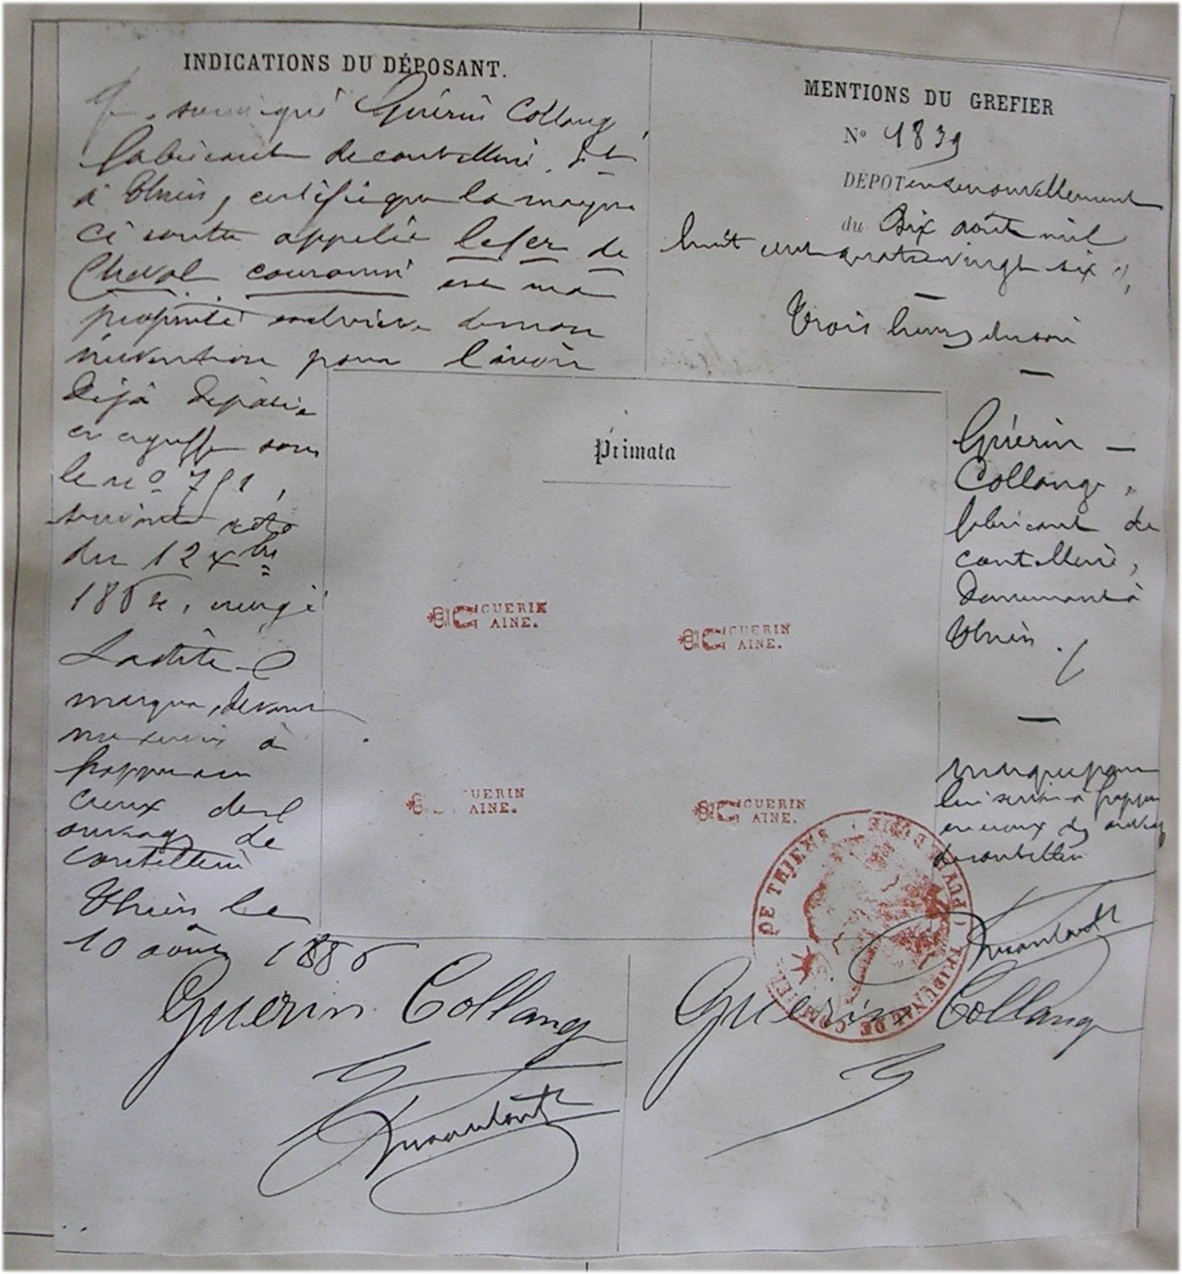 INDICATIONS DU DÉPOSANT.
Je soussigné Guérin Collange,
fabricant de coutellerie, Dt
à Thiers, certifie que la marque
ci contre appelée le fer de
Cheval couronné est ma
propriété exclusive de mon
invention pour l'avoir
déjà déposée
au greffe sous
le no 791,
suivant acte
du 12 xbre
186
Ladite
marque devant
me servir à
frapper en
creux des
ouvrages de
coutellerie
Thiers le
10 août 1886
Guérin Collange
MENTIONS DU GREFIER
No 1839
DÉPOT en renouvellement
du dix août mil
huit cent quatre vingt six,
Trois heures du soir
Guérin –
Collange,
fabricant de
coutellerie,
demeurant à
Thiers.
marque pour
lui servir à frapper
en creux des ouvrages
de coutellerie
Guerin Collange
Primata
GUERIN
AINE.
GUERIN
AINE.
UERIN
AINE.
GUERIN
AINE.
TRIBUNAL DE COMMERCE DE THIERS (PUY DE DOME)